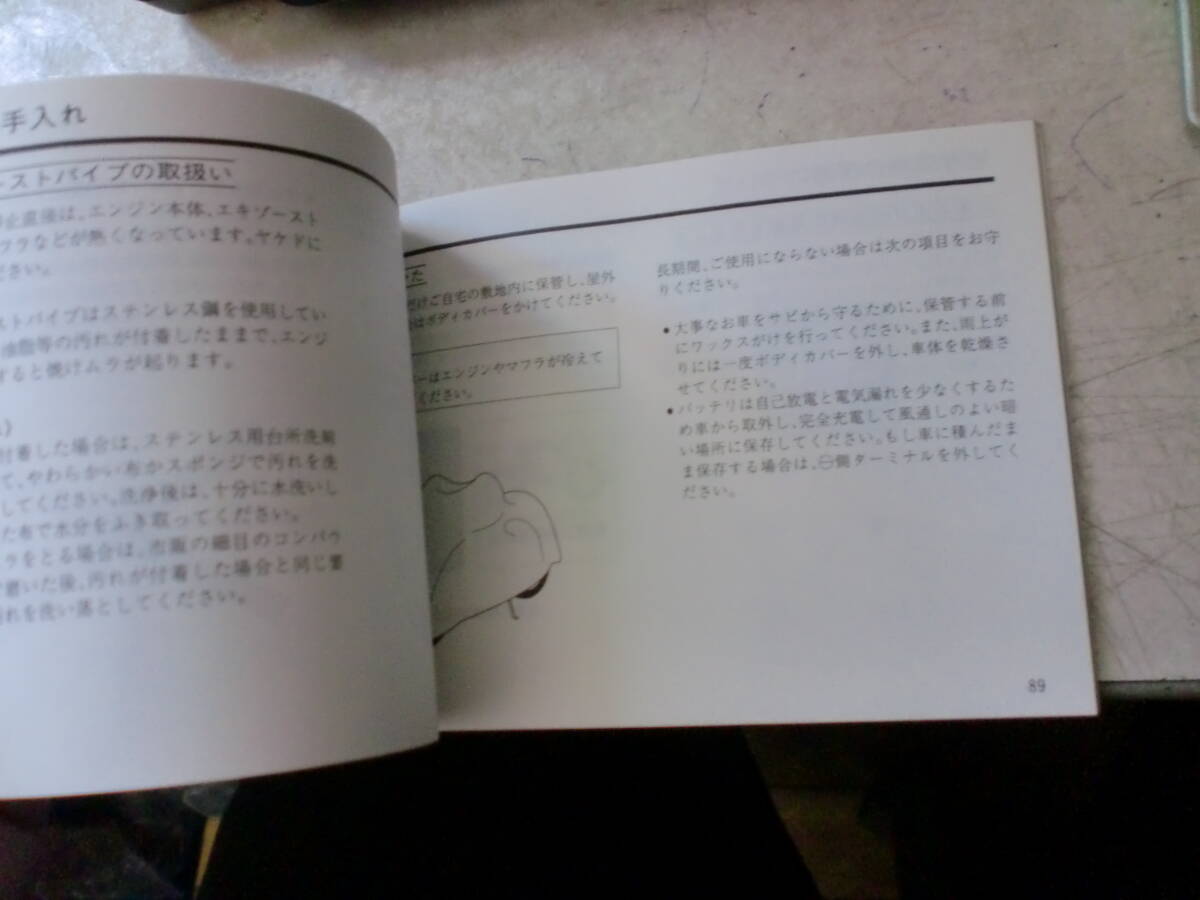 手入れ
ストパイプの取扱い
止直後は、エンジン本体、エキゾースト
フラなどが熱くなっています。ヤケドに
ださい。
ストパイプはステンレス鋼を使用してい
油脂等の汚れが付着したままで、エンジ
すると焼けムラが起ります。
付着した場合は、ステンレス用台所洗剤
て、やわらかい布かスポンジで汚れを洗
してください。洗浄後は、十分に水洗いし
た布で水分をふき取ってください。
ラをとる場合は、市販の細目のコンパウ
で磨いた後、汚れが付着した場合と同じ要
汚れを洗い落としてください。
かた
だけご自宅の敷地内に保管し、屋外
はボディカバーをかけてください。
バーはエンジンやマフラが冷えて
ください。
長期間、ご使用にならない場合は次の項目をお守
りください。
●大事なお車をサビから守るために、保管する前
にワックスがけを行ってください。また、雨上が
りには一度ボディカバーを外し、車体を乾燥さ
せてください。
●バッテリは自己放電と電気漏れを少なくするた
め車から取外し、完全充電して風通しのよい暗
い場所に保存してください。もし車に積んだま
ま保存する場合は、⊖側ターミナルを外してく
ださい。
89